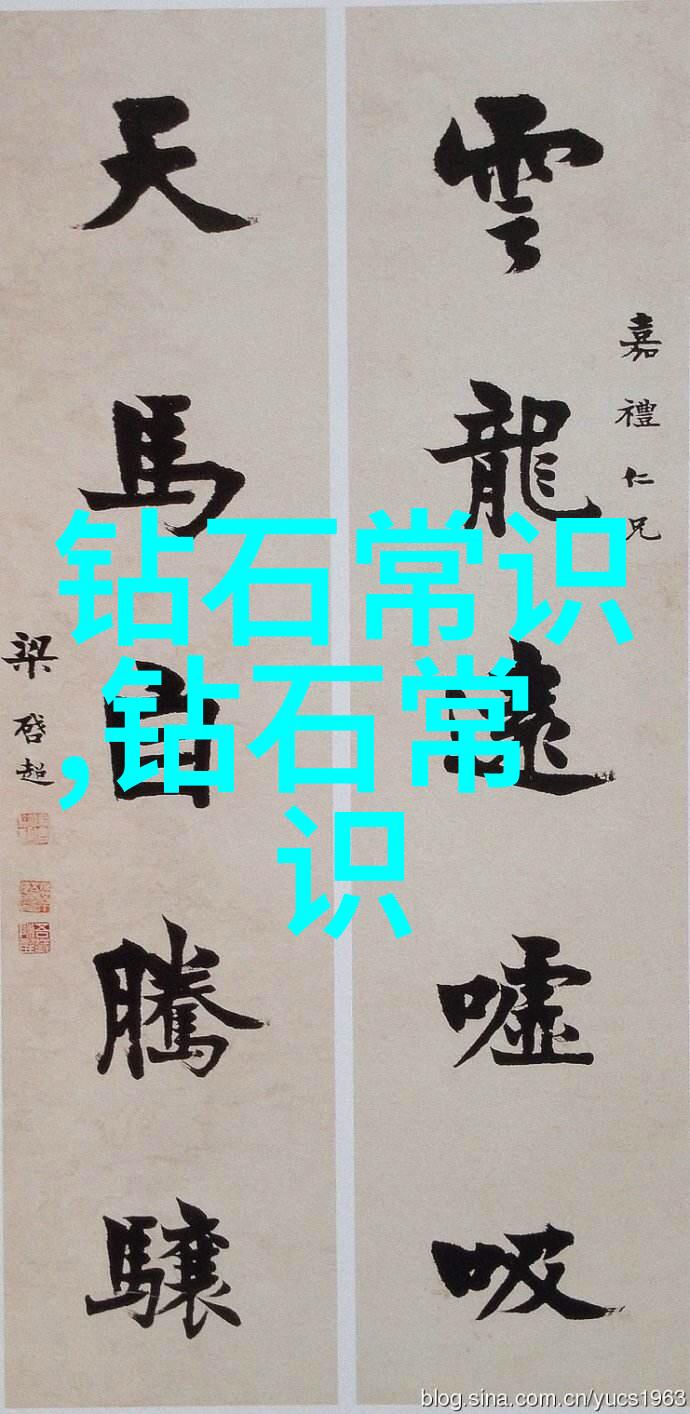 雲龍遠噓吸
嘉禮仁兄
天馬自騰驤
梁啓超
钻石常识
,钻石常
识
blog.sina.com.cn/yucs1963